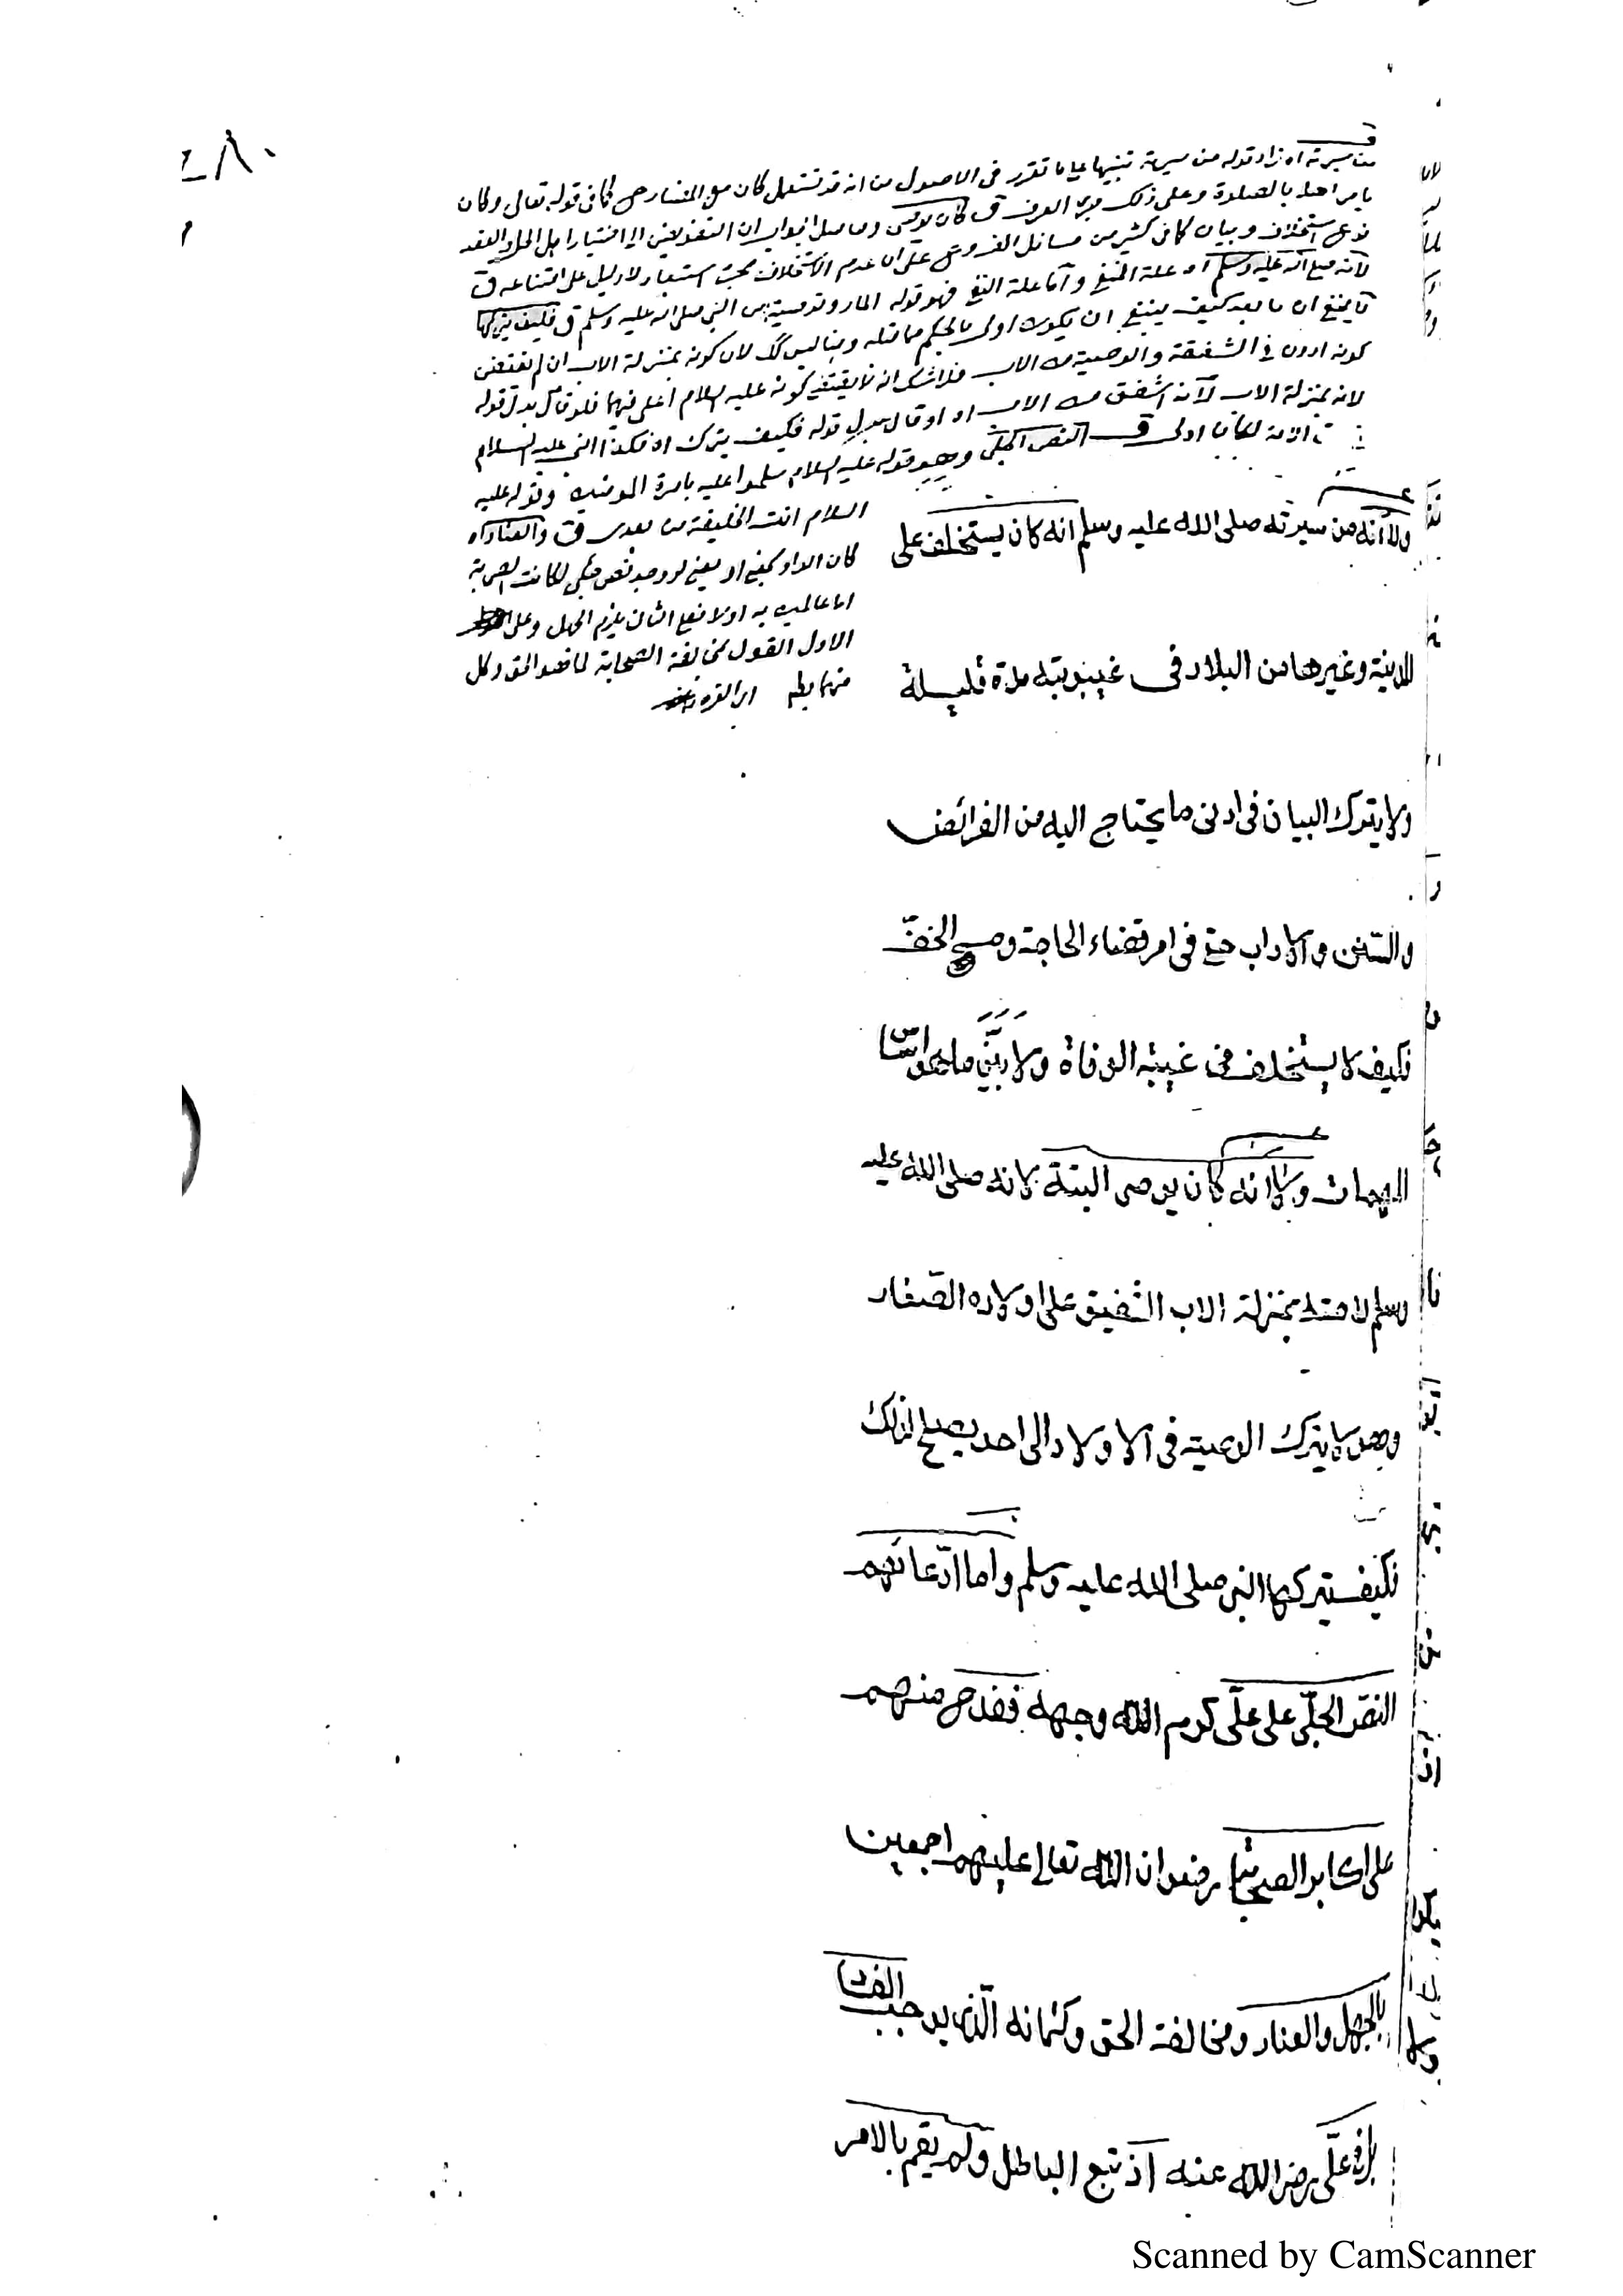 ٨٠
من سيرته اه زاد قوله من سيرته تنبيها على ما تقرر فى الاصول من انه قد تستعمل كان مع المضارع كما فى قوله تعالى وكان
يامر اهله بالصلوة وعلى ذلك العرف ق كان يوصى وحاصل الجواب ان التفويض الى اختيار اهل الحل والعقد
نوع استخلاف وبيان كما فى كثير من مسائل الفروع على ان عدم الاستخلاف مجرد استبعاد لا دليل على امتناعه ق
لانه صلى الله عليه وسلم اه علة المنفى واما علة النفى فهو قوله المار وتوصية من النبى صلى الله عليه وسلم ق فكيف يتركها
ان ما بعد كيف ينبغى ان يكون اولى بالحكم مما قبله وهنا ليس كك لان كونه بمنزلة الاب ان لم يقتض
كونه ادون فى الشفقة والوصية من الاب فلا شك انه لا يقتضى كونه عليه السلام اعلى فيها فلو قال بدل قوله
لانه بمنزلة الاب لانه اشفق من الاب اه او قال بدل قوله فكيف يترك اه فكذا النبى عليه السلام
لكان اولى ق النص الجلى وهو قوله عليه السلام سلموا عليه بامرة المومنين وقوله عليه
السلام انت الخليفة من بعدى ق والعناد اه
كان الواو بمعنى او يعنى لو وجد نص جلى لكانت الصحابة
اما عالمين به او لا فعلى الثانى يلزم الجهل وعلى
الاول القول بمخالفة الصحابة لما هو الحق وكل
منهما بط
ولانه من سيرته صلى الله عليه وسلم انه كان يستخلف على
المدينة وغيرها من البلاد فى غيبوبته مدة قليلة
ولا يترك البيان فى ادنى ما يحتاج اليه من الفرائض
والسنن والاداب حتى فى امر قضاء الحاجة ومسح الخف
فكيف لا يستخلف فى غيبة الوفاة ولا يبين ما هو اس
المهمات ولانه كان يوصى البتة لانه صلى الله عليه
وسلم لامته بمنزلة الاب الشفيق على اولاده الصغار
وهو لا يترك الوصية فى الاولاد الى احد يصلح لذلك
فكيف يتركها النبى صلى الله عليه وسلم واما ادعائهم
النص الجلى على على كرم الله وجهه فقدح منهم
على اكابر الصحابة رضوان الله تعالى عليهم اجمعين
بالجهل والعناد ومخالفة الحق وكتمانه الذى يوجب القدح
فى على رضى الله عنه اذ تبع الباطل ولم يقم بالامر
Scanned by CamScanner